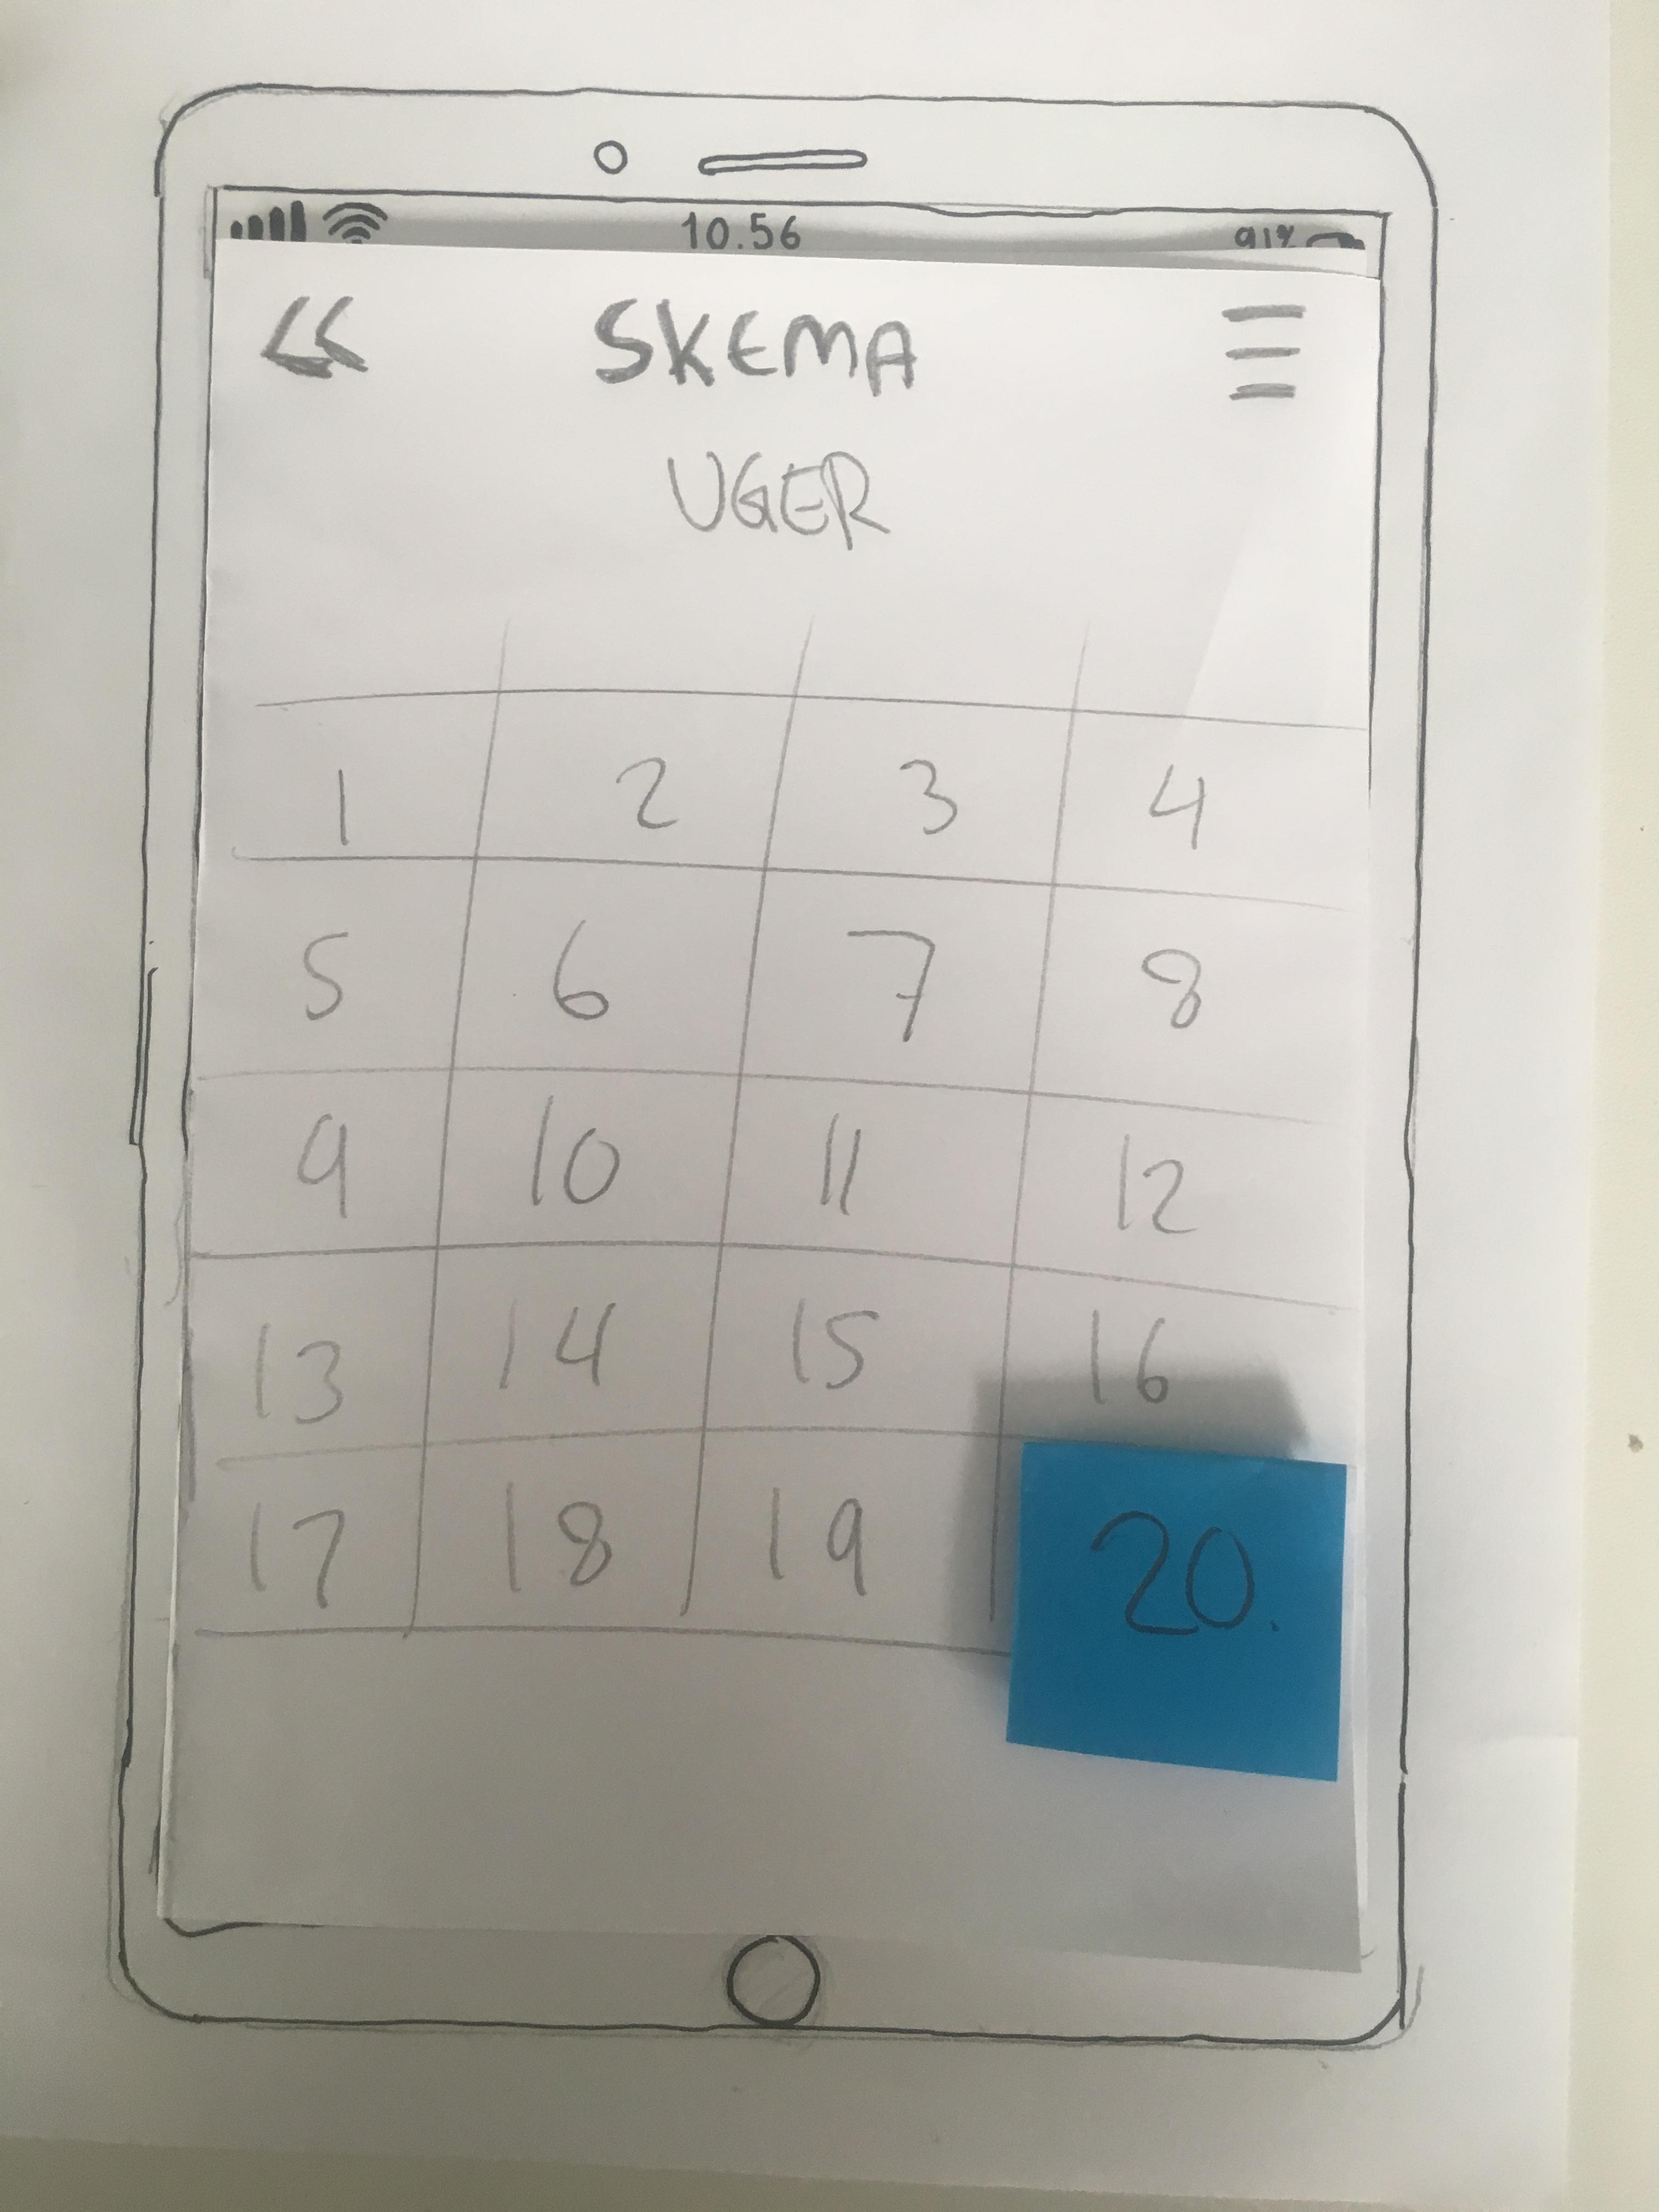 10.56 91%
<< SKEMA
UGER
1 2 3 4
5 6 7 8
9 10 11 12
13 14 15 16
17 18 19 20.